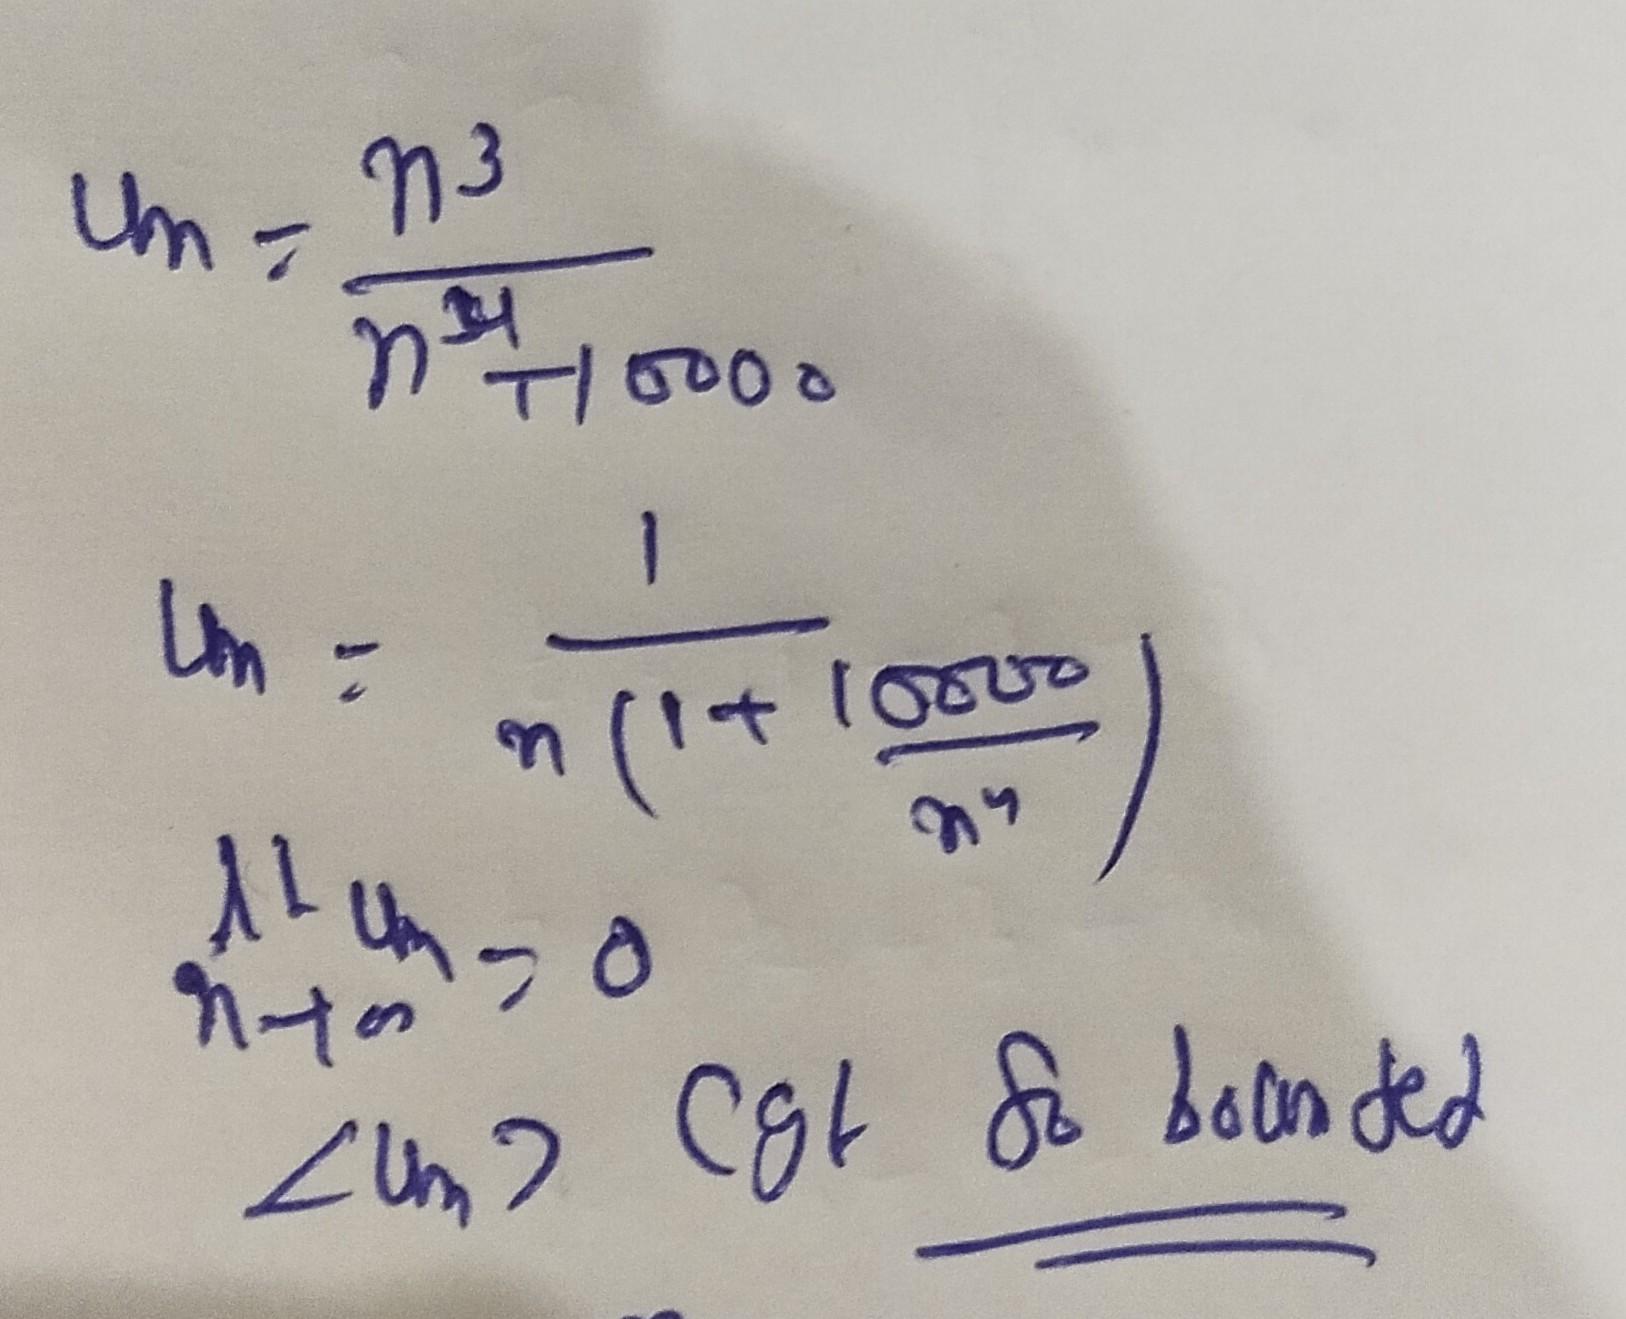 Un = n³ / n⁴ + 10000
Un = 1 / n (1 + 10000 / n⁴)
lt Un = 0
n→∞
<Un> Cgt So bounded